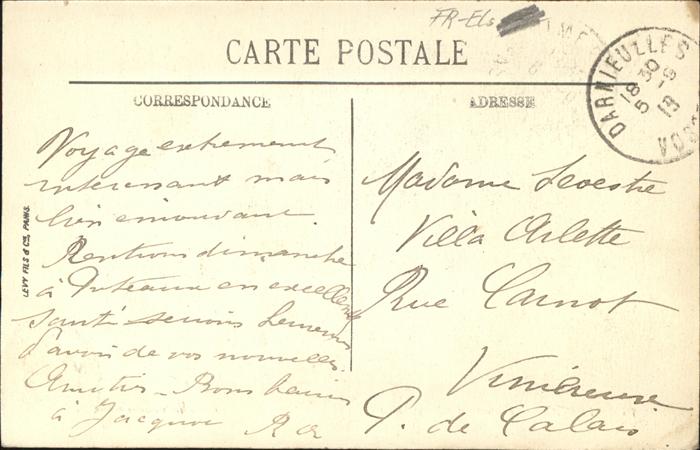 FR-Els
CARTE POSTALE
CORRESPONDANCE
ADRESSE
DARNIEULLES
18 30
5 - 8
19
VOSGES
Voyage extrement
interessant mais
bien émouvant.
Rentrons dimanche
à Puteaux en excellente
santé serions heureux
d'avoir de vos nouvelles.
Amitiés - Bons baisers
à Jacques
Madame Levestre
Villa Arlette
Rue Carnot
Wimereux
P. de Calais
LEVY FILS & Cie, PARIS.